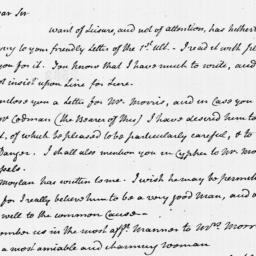 ear Sir
want of Leisure, and not of attention, has hitherto
ry to your friendly Letter of the 1st ult. - I read it with ple
you for it. You know that I have much to write, and
t insist upon Line for Line.
nclose you a Letter for Mr. Morris, and in Case you
r Codman (The Bearer of this) I have desired him to
t, of which be pleased to be particularly careful, & to
Danger. I shall also mention you in Cypher to Mr. Mo
pels.
Moylan has written to me. I wish he may be permi
for I really believe him to be a very good Man, and a
well to the common Cause -
ember us in the most affte. Manner to Mrs. Morr
a most amiable and charming Woman